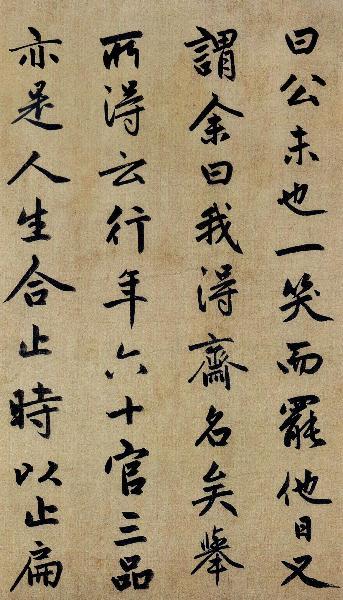 曰公未也一笑而罷他日又
謂余曰我得齋名矣舉
所得云行年六十官三品
亦是人生合止時以止扁